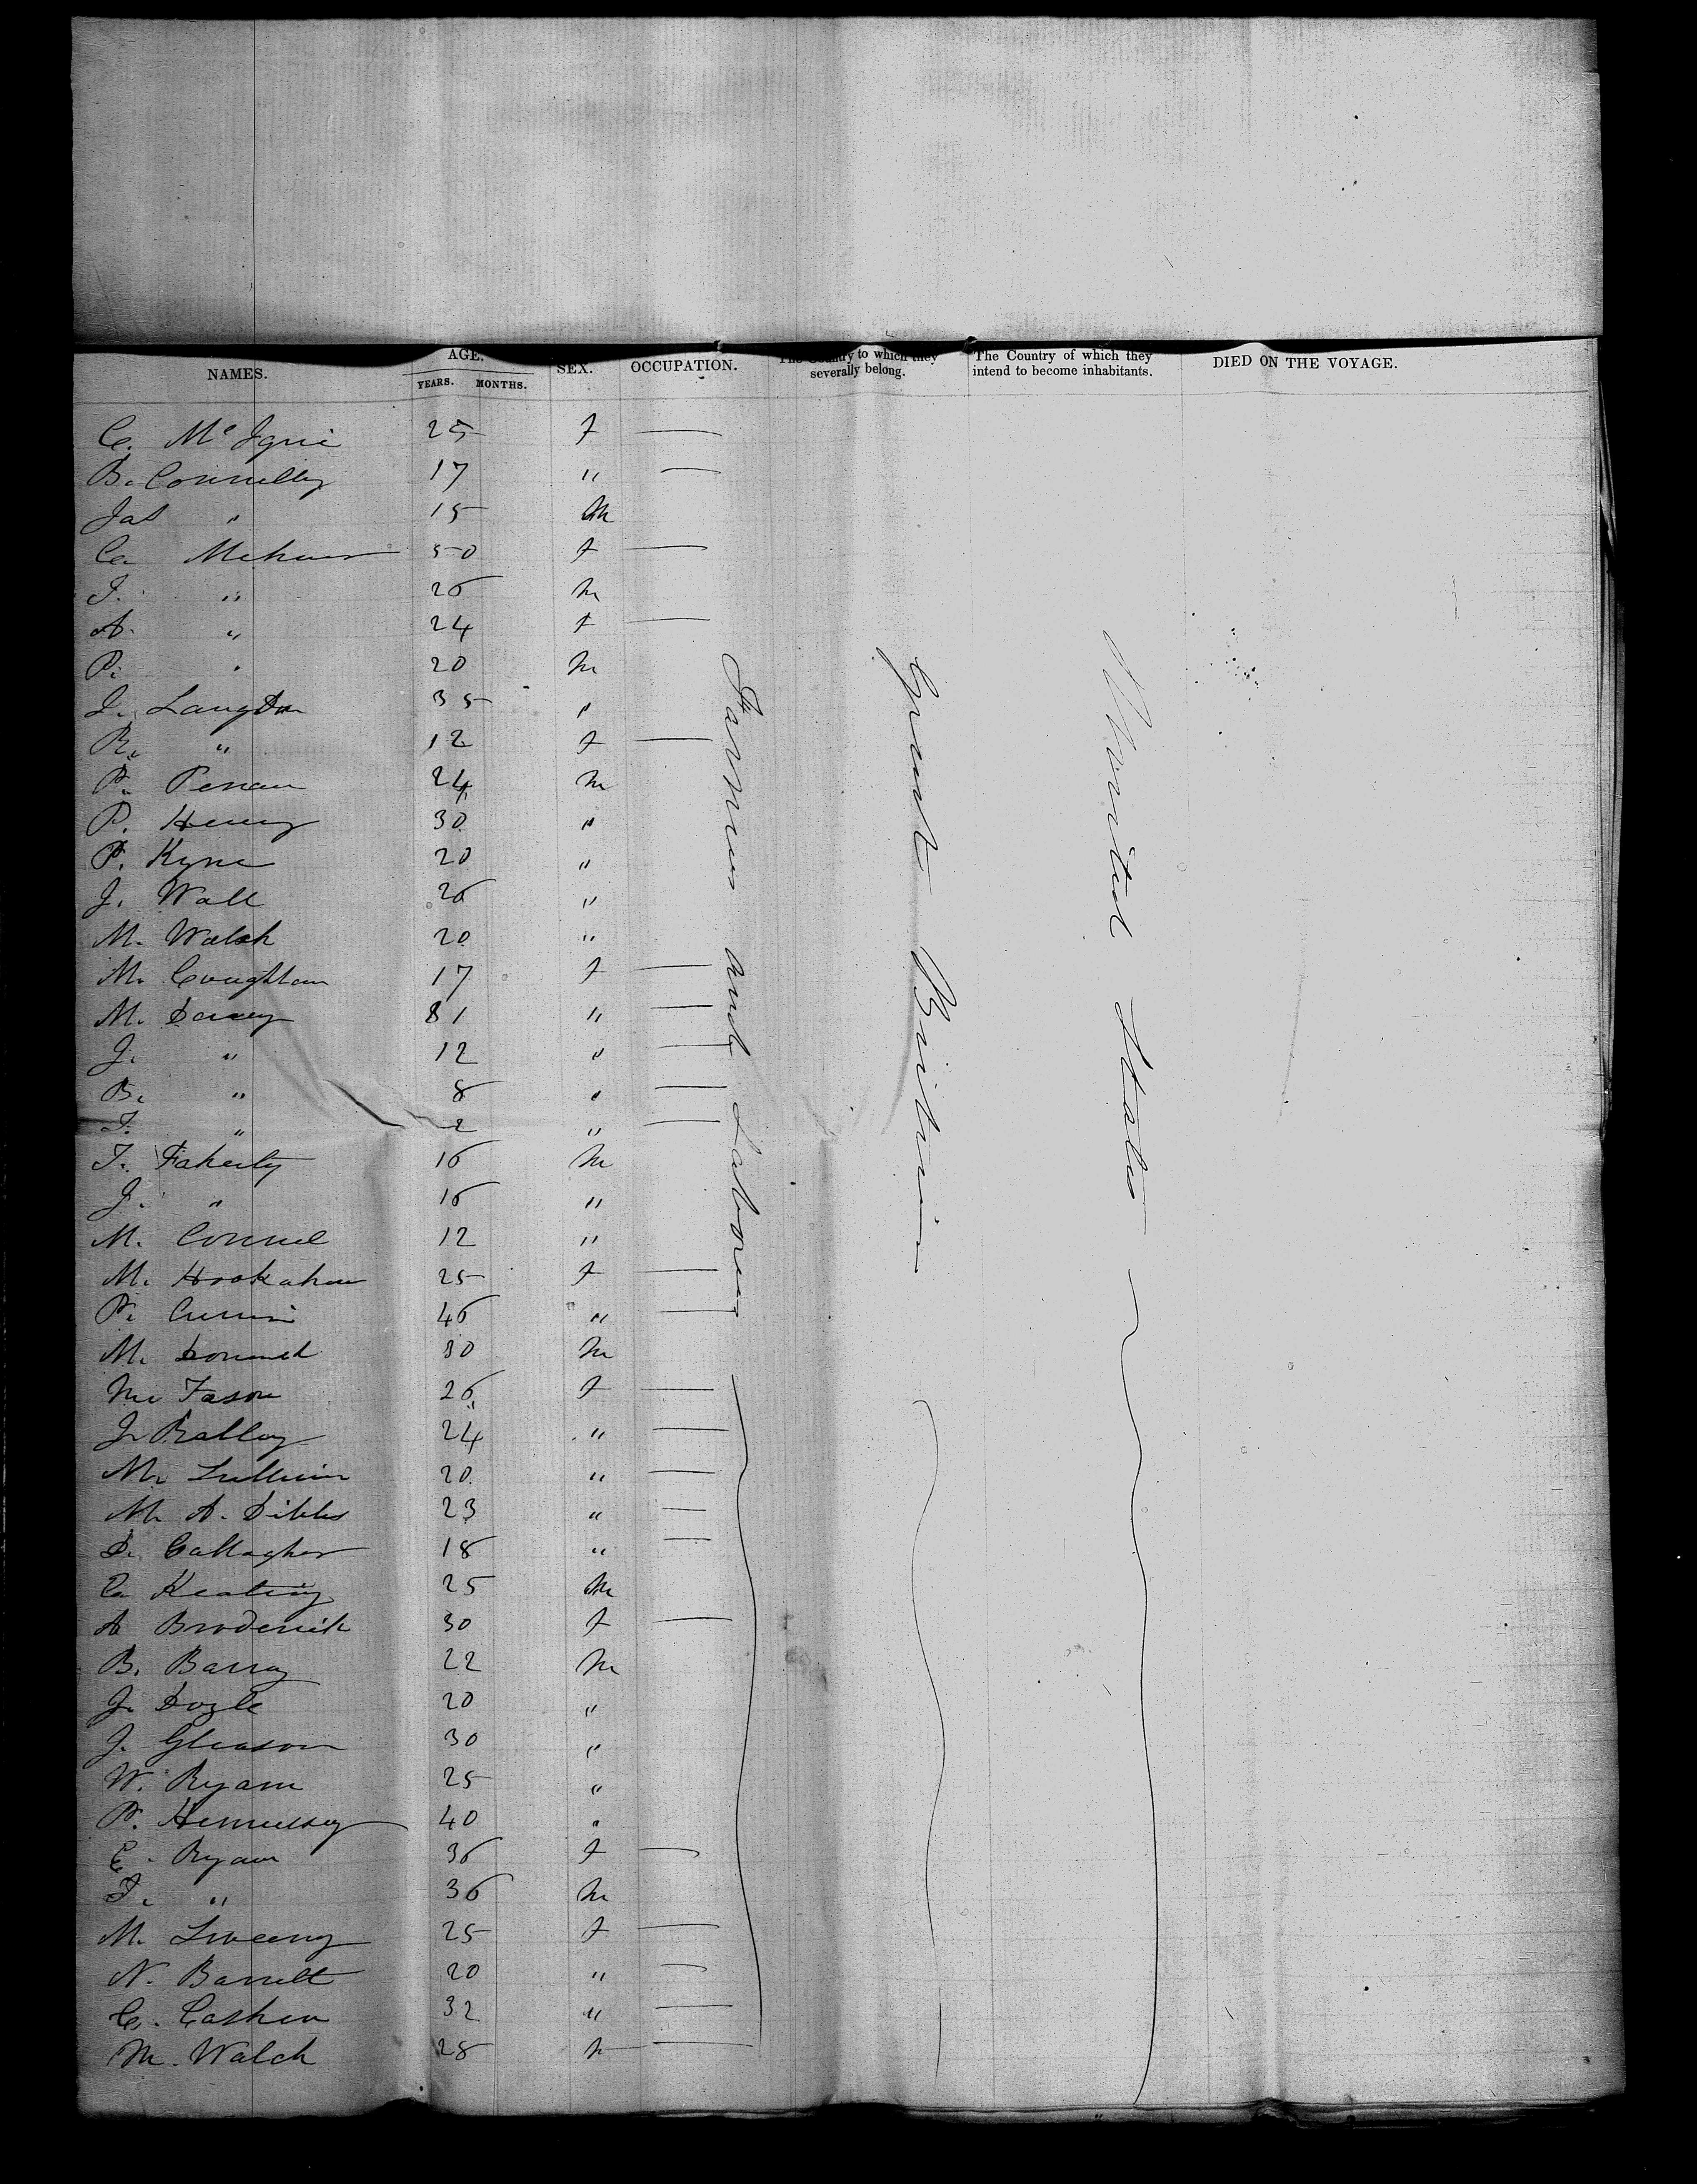 NAMES. AGE. YEARS. MONTHS. SEX. OCCUPATION. The Country to which they severally belong. The Country of which they intend to become inhabitants. DIED ON THE VOYAGE.
C. 25 f —
B. Connelly 17 " —
Jas " 15 M
Ca 50 f —
J. " 26 M
A. " 24 f —
P. " 20 M
J. Langdon 35 "
R. " 12 f —
P. 24 M
P. Henry 30 "
P. Kyne 20 "
J. Wall 26 "
M. Walsh 20 "
M. Coughlan 17 f —
M. 31 " —
J. " 12 " —
B. " 8 " —
T. " 2 " —
T. Faherty 16 M
J. " 16 "
M. Connel 12 "
M. 25 f —
P. 46 " —
M. 30 M
M. Fason 26 f —
J. 24 " —
M. Sullivan 20 " —
M. A. Dibbs 23 " —
D. Gallagher 18 " —
Ca Keating 25 M
A Broderick 30 f —
B. Barry 22 M
J. Doyle 20 "
J. Gleason 30 "
W. Ryan 25 "
P. Hennessey 40 "
E. Ryan 36 f —
T. " 36 M
M. Sweeny 25 f —
N. Barrett 20 " —
C. Cashen 32 " —
M. Walch 28 —
Farmers and Laborers
Great Britain
United States